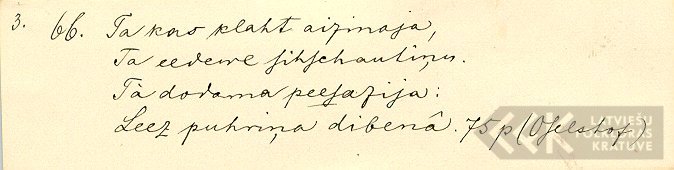 3. 66. Ta kas klaht aizinaja,
Ta eedewe sihschautiņu.
Tà dodama peesazija:
Leez puhriņa dibenâ. 75 p (Ohselshof)
LATVIEŠU
FOLKLORAS
KRĀTUVE